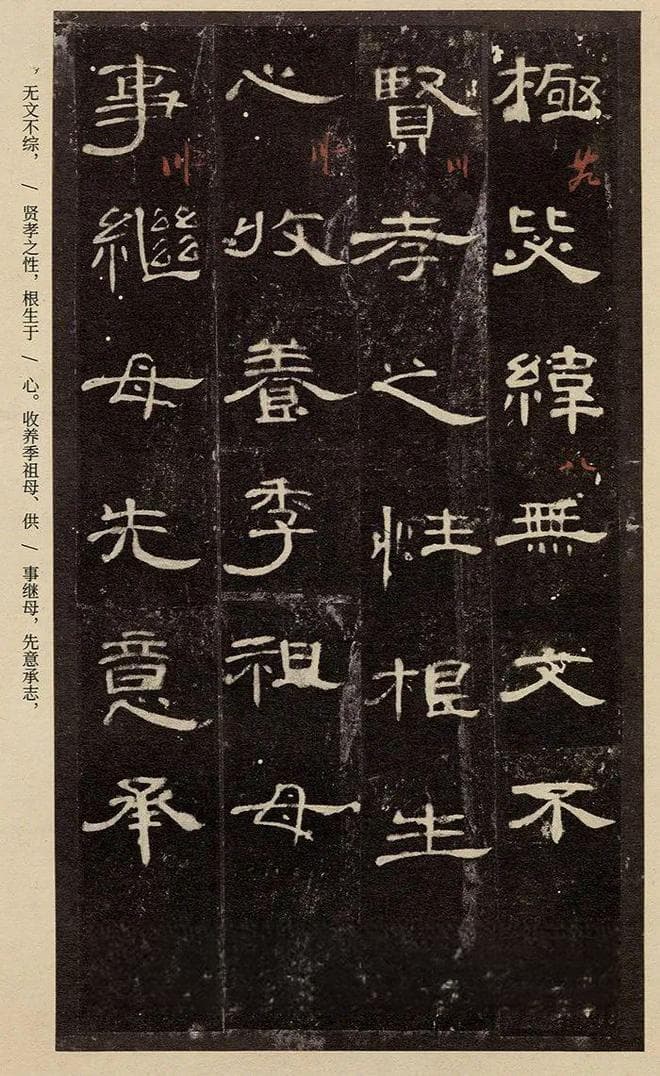 極毖緯無文不
賢孝之性根生
心收養季祖母
事繼母先意承
，无文不综，/ 贤孝之性，根生于 / 心。收养季祖母、供 / 事继母，先意承志，